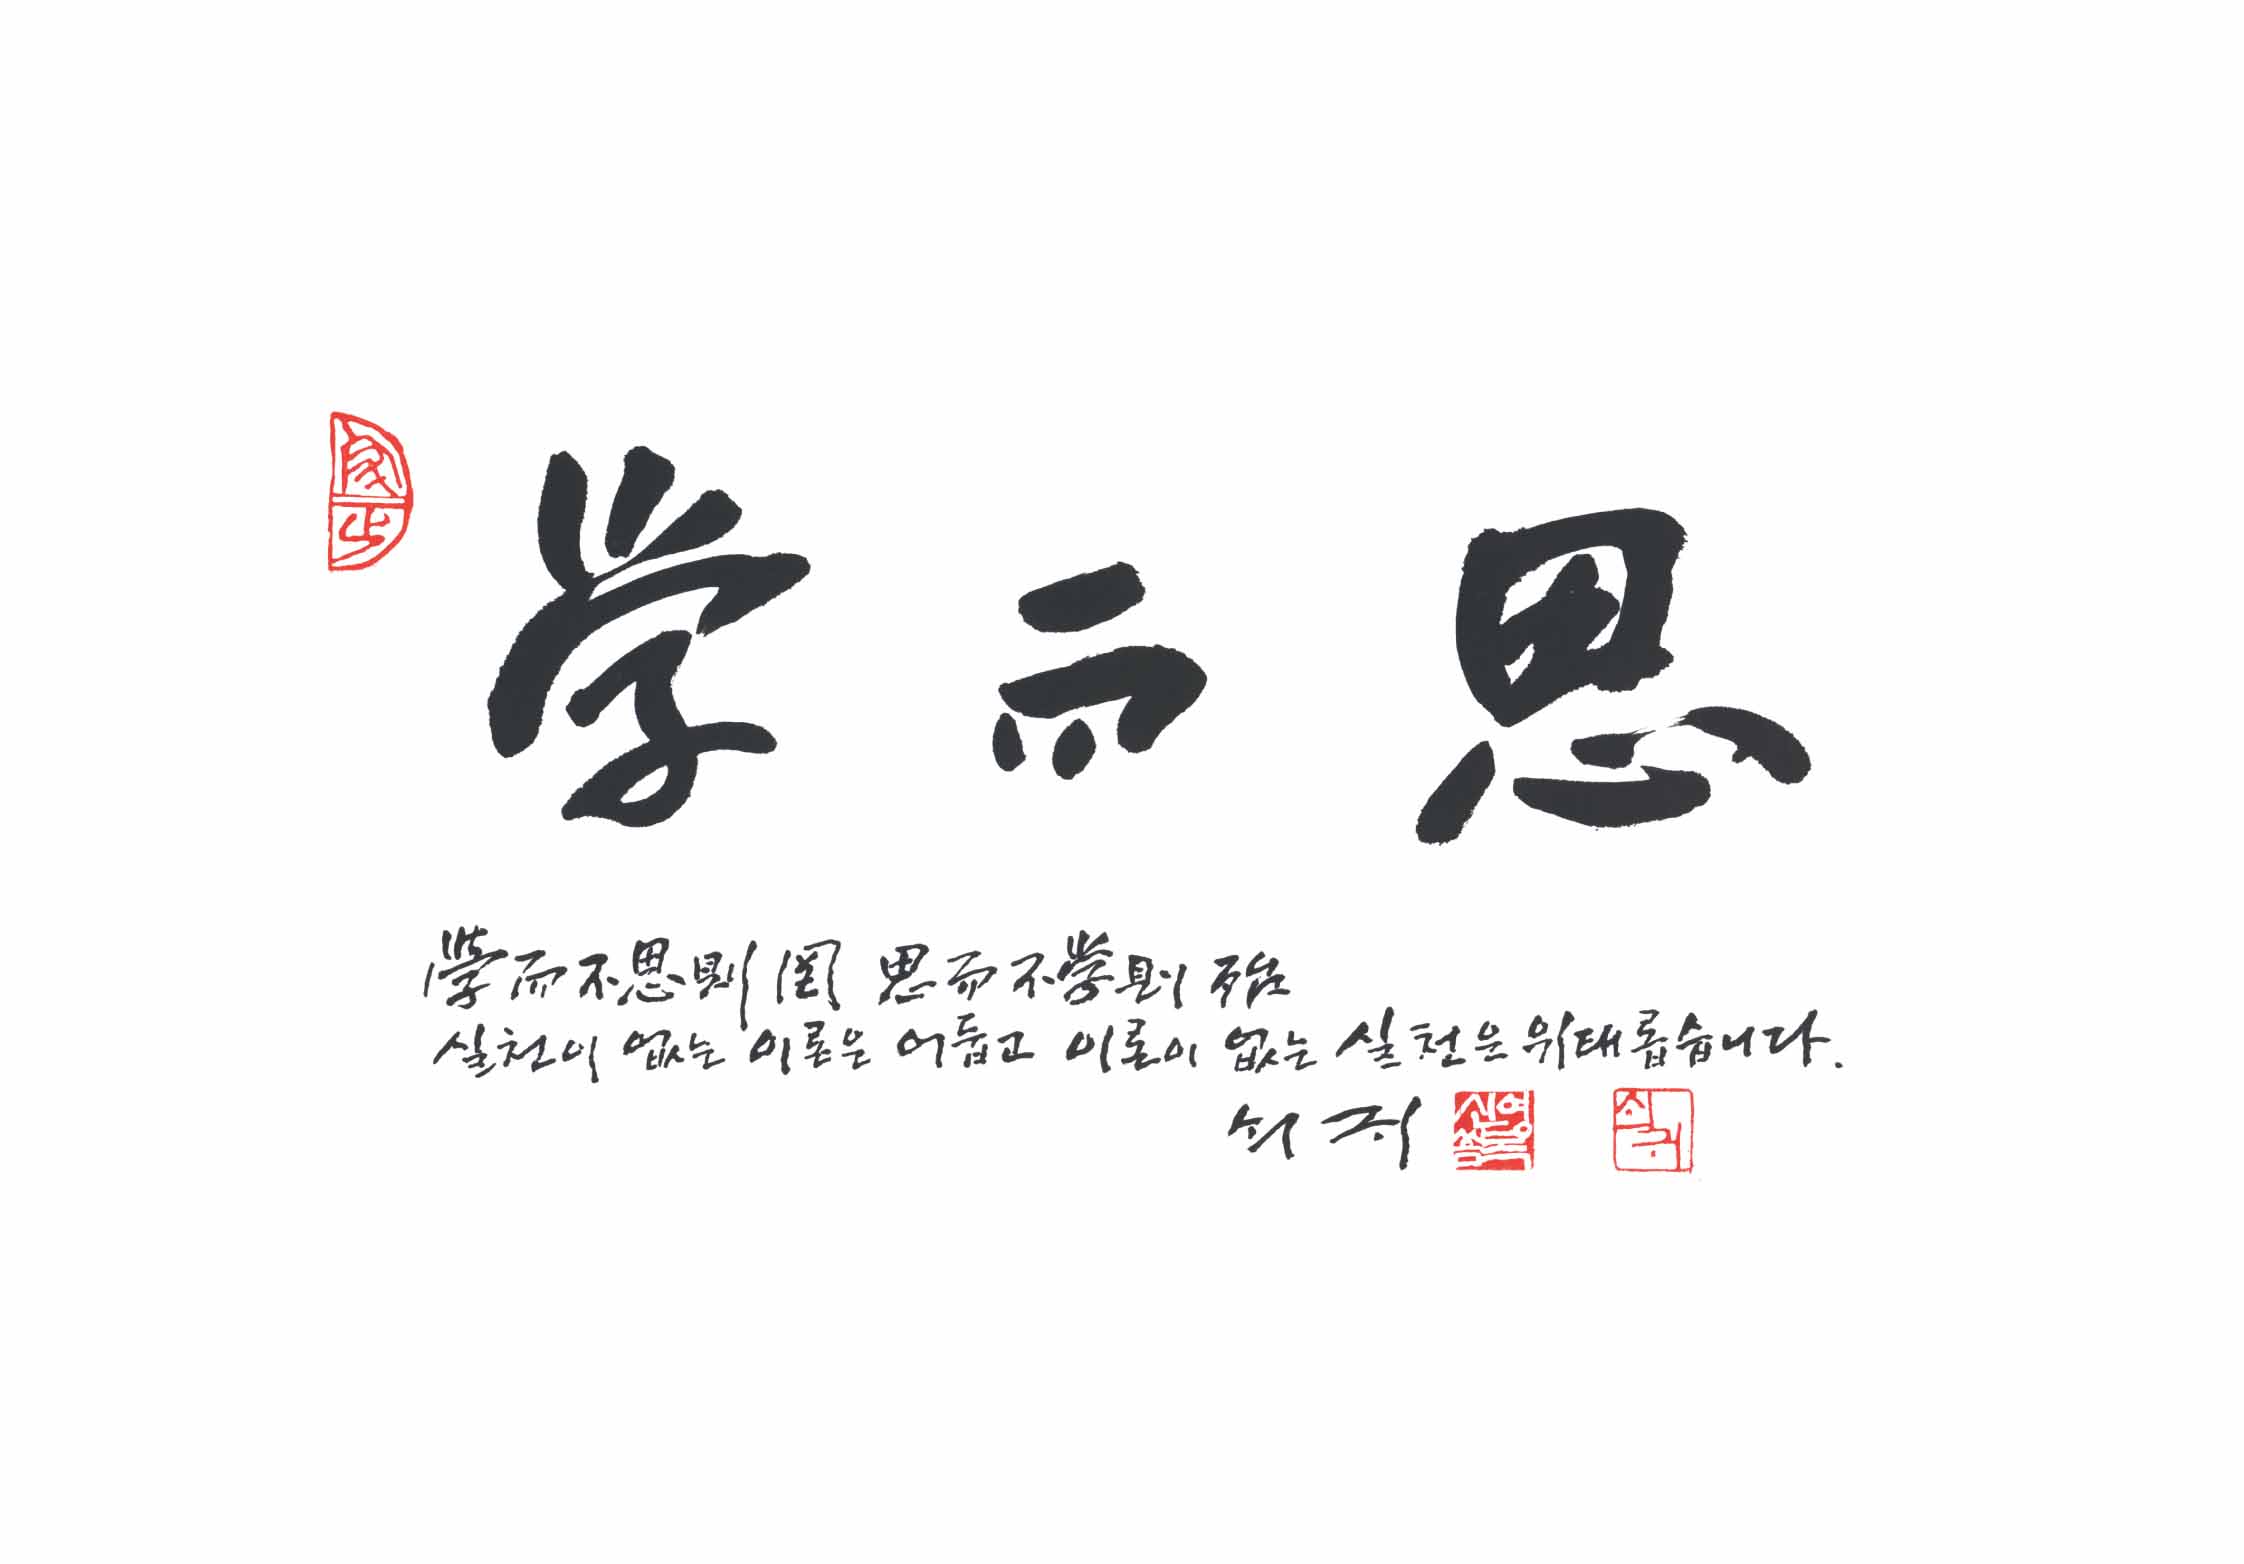 學而思
學而不思則罔 思而不學則殆
실천이 없는 이론은 어둡고 이론이 없는 실천은 위태롭습니다.
쇠귀